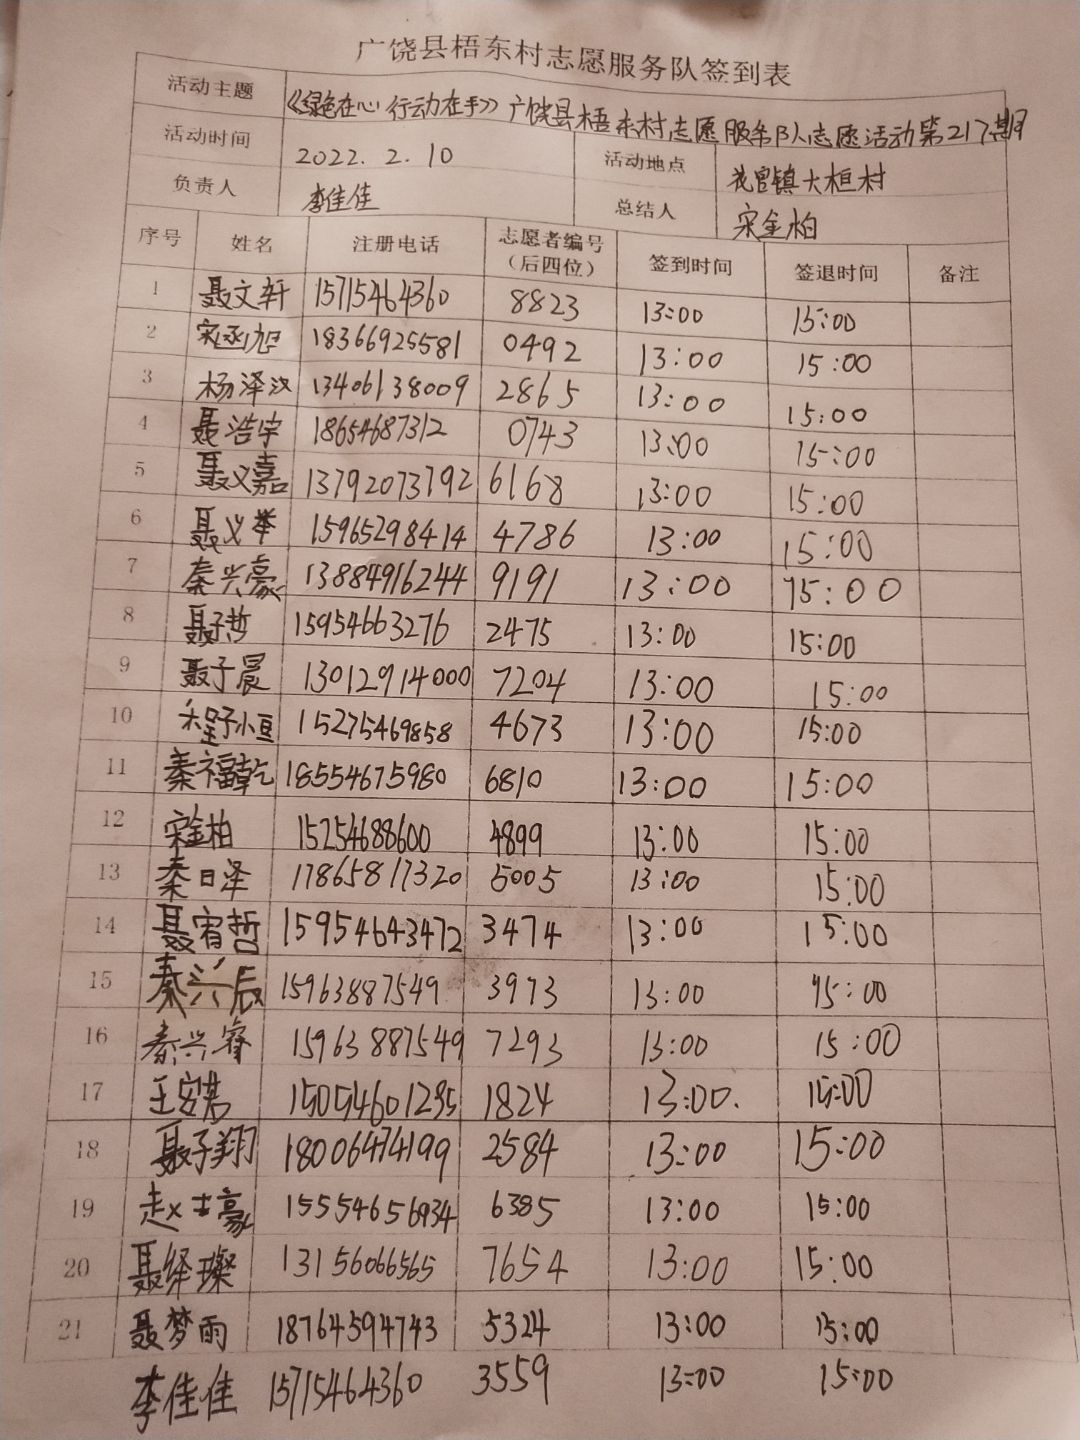 广饶县梧东村志愿服务队签到表
活动主题 《绿色在心 行动在手》广饶县梧东村志愿服务队志愿活动第217期
活动时间 2022.2.10 活动地点 花官镇大桓村
负责人 李佳佳 总结人 宋金柏
序号 姓名 注册电话 志愿者编号（后四位） 签到时间 签退时间 备注
1 聂文轩 15715464360 8823 13:00 15:00
2 宋函旭 18366925581 0492 13:00 15:00
3 杨泽汶 13406138009 2865 13:00 15:00
4 聂浩宇 18654687312 0743 13:00 15:00
5 聂义嘉 13792073792 6168 13:00 15:00
6 聂义举 15965298414 4786 13:00 15:00
7 秦兴豪 13884916244 9191 13:00 15:00
8 聂子哲 15954663276 2475 13:00 15:00
9 聂子晨 13012914000 7204 13:00 15:00
10 小豆 15275469858 4673 13:00 15:00
11 秦福乾 18554675980 6810 13:00 15:00
12 宋金柏 15254688600 4899 13:00 15:00
13 秦日泽 17865817320 5005 13:00 15:00
14 聂宥哲 15954643472 3474 13:00 15:00
15 秦兴辰 15963887549 3973 13:00 15:00
16 秦兴睿 15963887549 7293 13:00 15:00
17 王安 15054601235 1824 13:00. 15:00
18 聂子翔 18006474199 2584 13:00 15:00
19 赵士豪 15554656934 6385 13:00 15:00
20 聂绎璨 13156066565 7654 13:00 15:00
21 聂梦雨 18764594743 5324 13:00 15:00
李佳佳 15715464360 3559 13:00 15:00